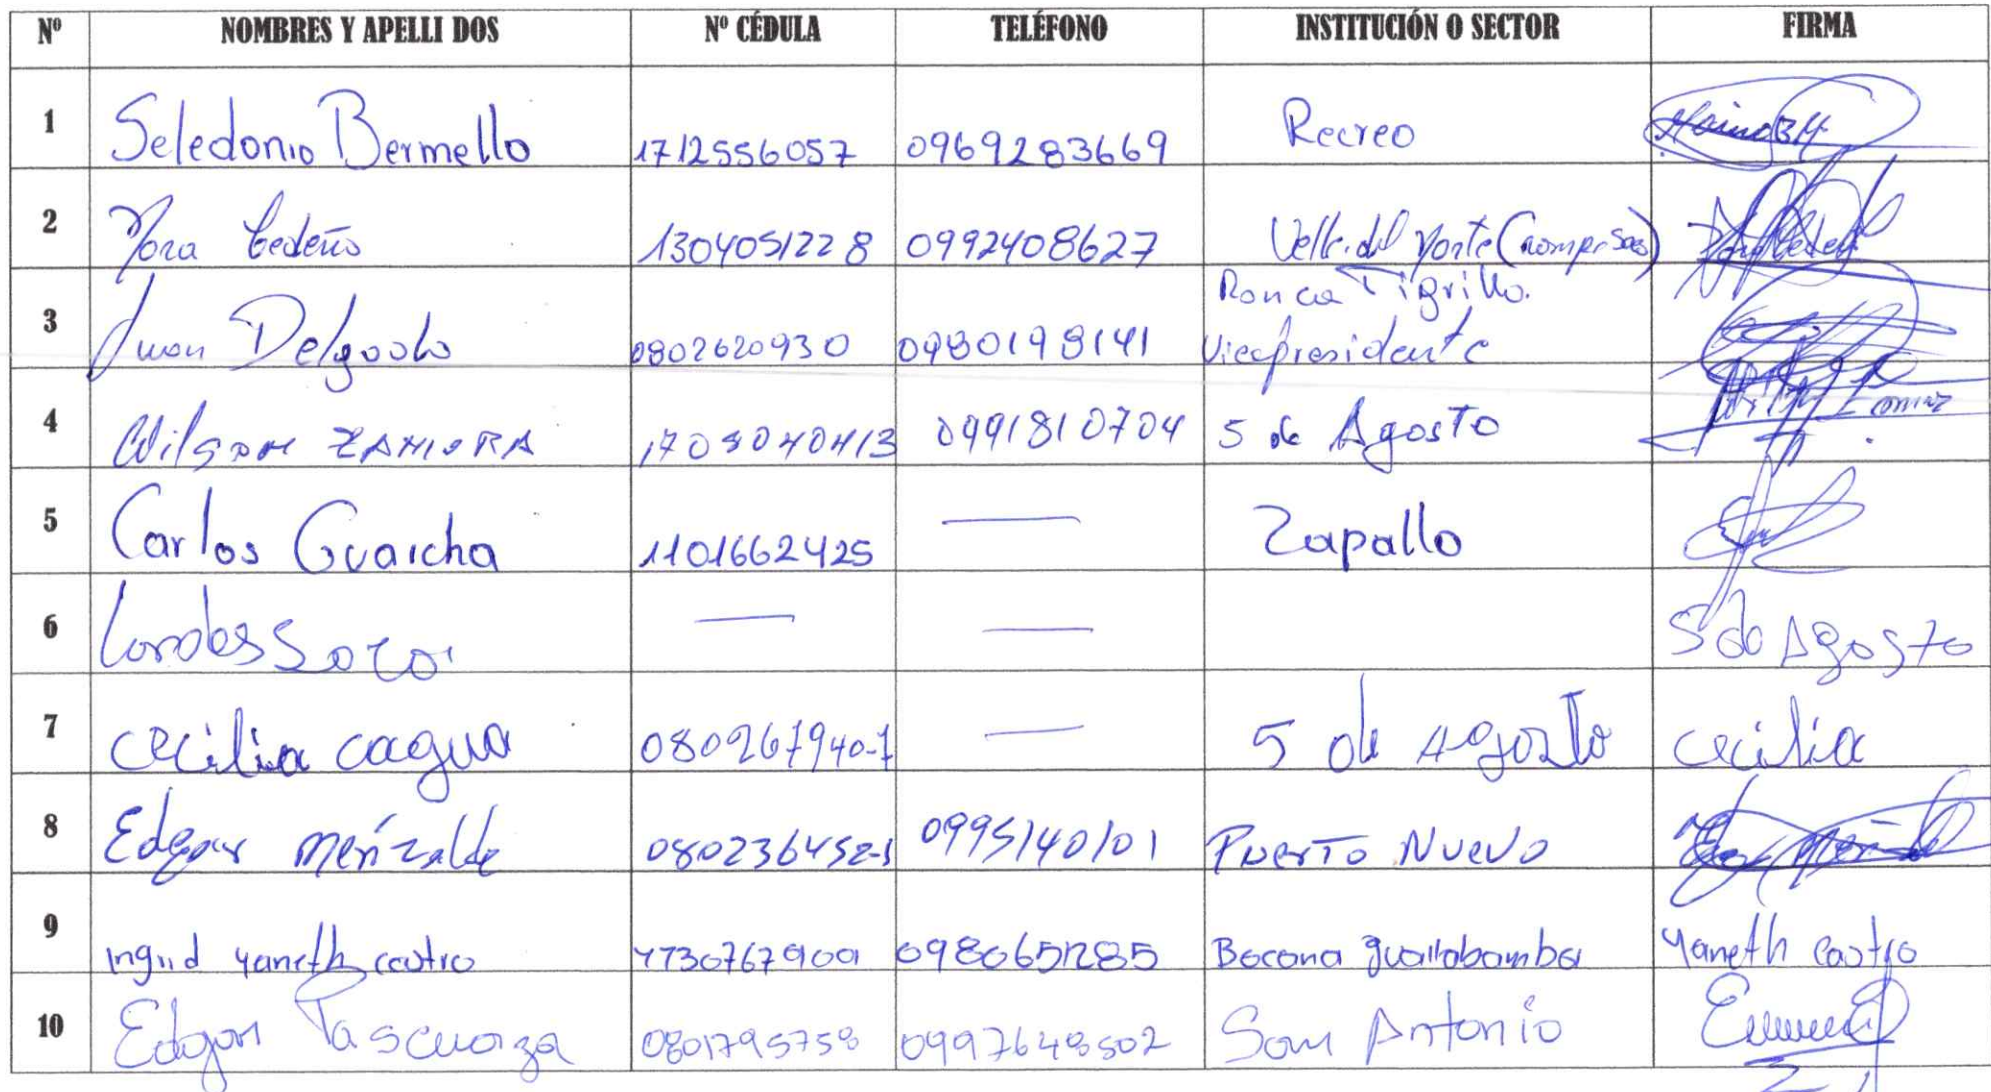 Nº NOMBRES Y APELLI DOS Nº CÉDULA TELÉFONO INSTITUCIÓN O SECTOR FIRMA
1 Seledonio Bermello 1712556057 0969283669 Recreo
2 Nora Cedeño 1304051228 0992408627 Valle del Norte
Ronca Tigrillo.
3 Juan Delgado 0802620930 0980198141 Vicepresidente
4 Wilson ZAMORA 0991810704 5 de Agosto
5 Carlos Guaicha 1101662425 — Zapallo
6 — — 5 de Agosto
7 Cecilia Cagua 080267940-7 — 5 de Agosto Cecilia
8 Edgar Merizalde 0995140101 Puerto Nuevo
9 Ingrid Yaneth Castro Bocana Guallabamba Yaneth Castro
10 Edgar 0801795758 0997648502 San Antonio